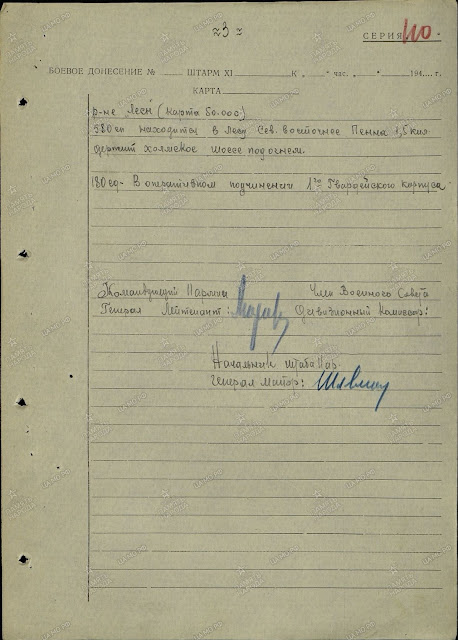 ~ 3 ~
СЕРИЯ 110-
БОЕВОЕ ДОНЕСЕНИЕ № ШТАРМ XI К " час. " 194 г.
КАРТА
р-не Лесн (карта 50.000)
380сп находится в лесу Сев. восточнее Пенна 1,5 килм
держит холмское шоссе под огнем.
180сд- В оперативном подчинении 1го Гвардейского корпуса
Командующий Пармиа Член Военного Совета
Генерал Лейтенант: Дивизионный Комиссар:
Начальник штаба Пар.
Генерал Майор: